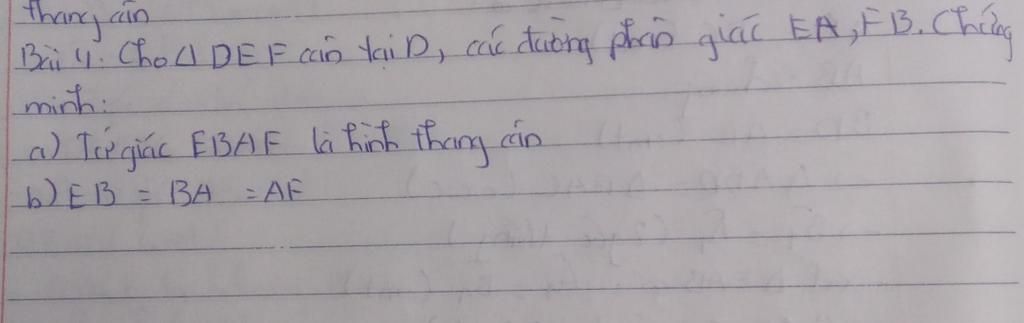 thang cân
Bài 4. Cho Δ DEF cân tại D, các đường phân giác EA, FB. Chứng
minh:
a) Tứ giác EBAF là hình thang cân
b) EB = BA = AF